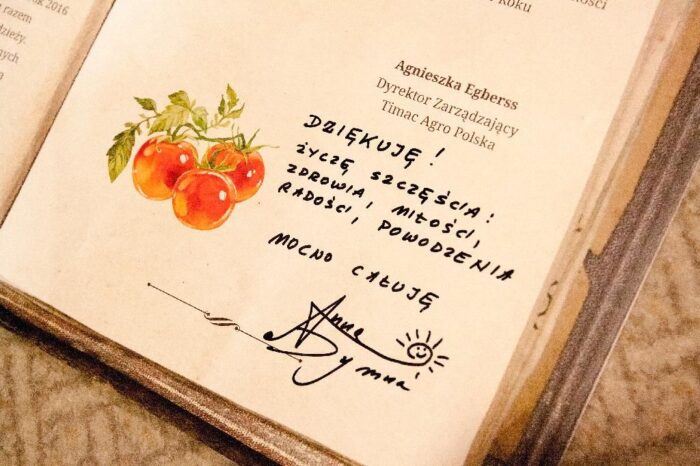 ok 2016
razem
dzieży.
nych
ą
ności
Roku
Agnieszka Egberss
Dyrektor Zarządzający
Timac Agro Polska
DZIĘKUJĘ!
ŻYCZĘ SZCZĘŚCIA!
ZDROWIA, MIŁOŚCI,
RADOŚCI, POWODZENIA
MOCNO CAŁUJĘ
Anna
Dymna